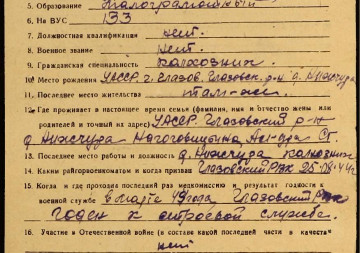 5. Образование Малограмотный
6. На ВУС 133
7. Должностная квалификация нет.
8. Военное звание нет.
9. Гражданская специальность колхозник
10. Место рождения УАССР. г. Глазов. Глазовск. р-н д. Нижчура
11. Последнее место жительства там-же.
12. Где проживает в настоящее время семья (фамилия, имя и отчество жены или
родителей и точный их адрес) УАССР. Глазовский р-н
д Нижчура Наговицына
13. Последнее место работы и должность д. Нижчура колхозник
14. Каким райгорвоенкоматом и когда призван Глазовский РВК 25.08.41г.
15. Когда и где проходил последний раз медкомиссию и результат годности к
военной службе в марте года Глазовский РВК
годен к строевой службе.
16. Участие в Отечественной войне (в составе какой последней части в качестве
нет